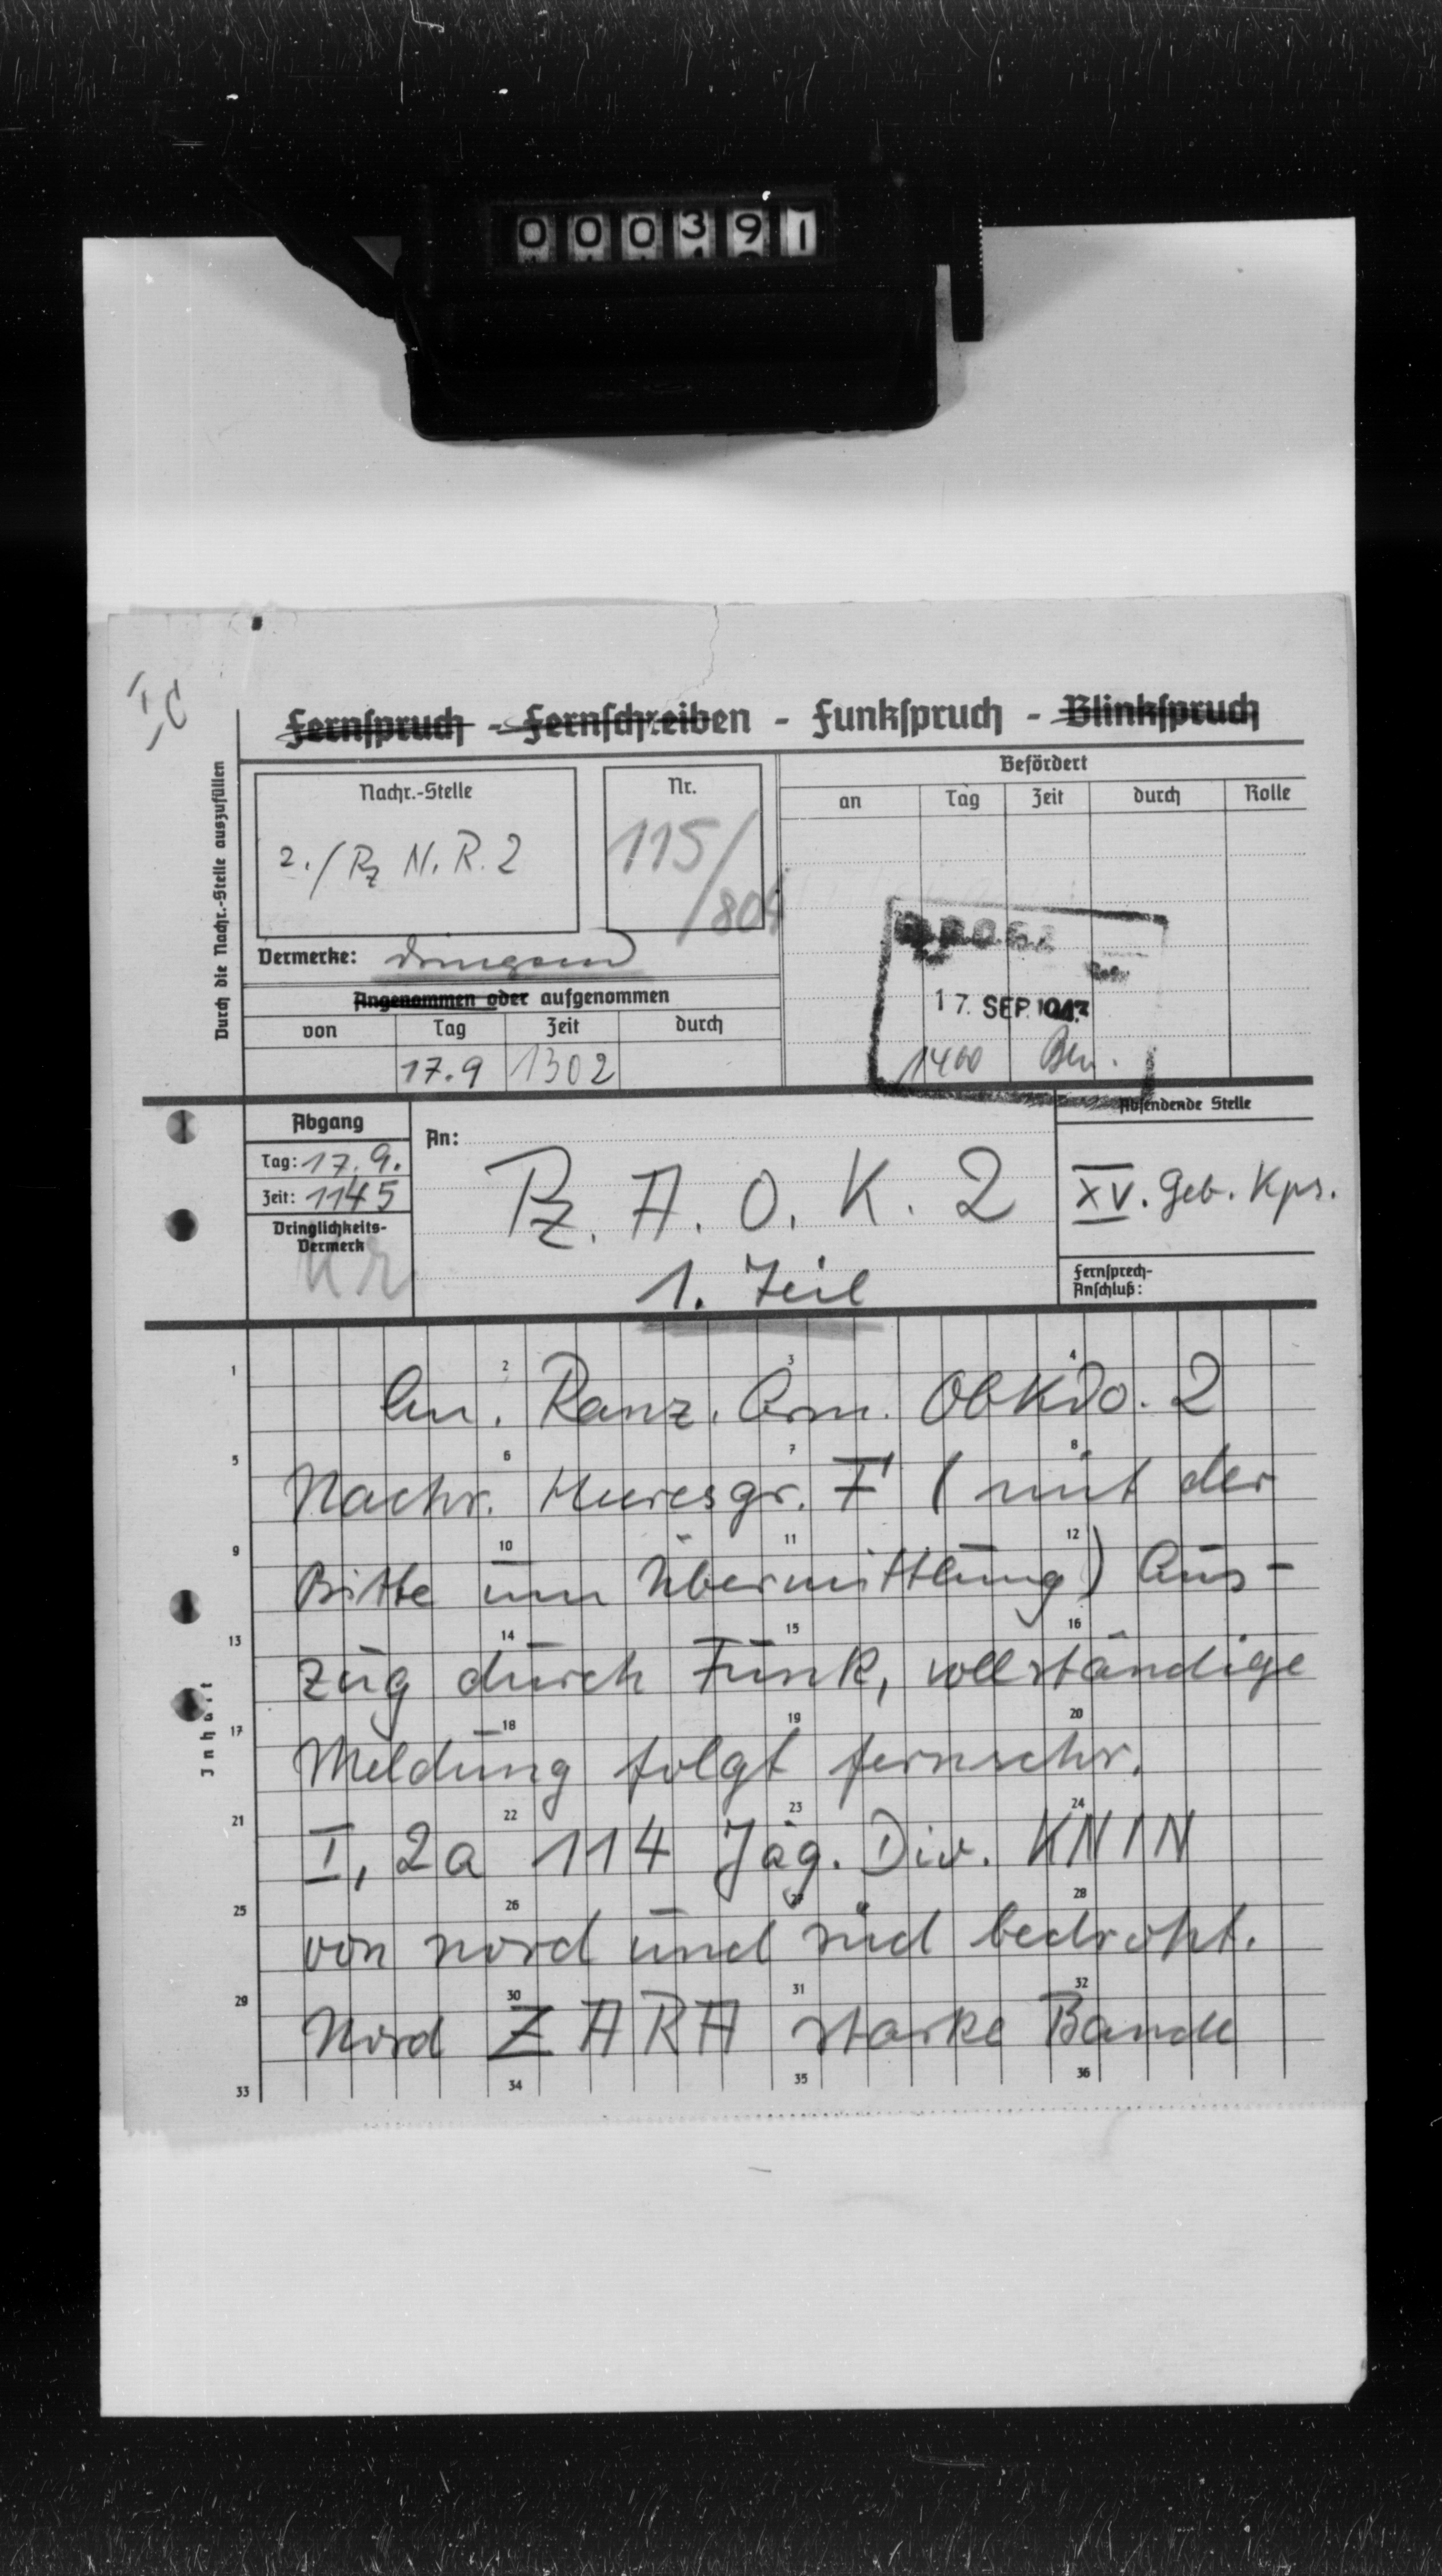 000391
Ic
Fernspruch - Fernschreiben - Funkspruch - Blinkspruch
Durch die Nachr.-Stelle auszufüllen
Nachr.-Stelle
2./Pz N. R. 2
Nr.
115/
/804
Befördert
an Tag Zeit durch Rolle
Vermerke: dringend
Angenommen oder aufgenommen
von Tag Zeit durch
17.9 1302
17. SEP.
1400
Abgang
Tag: 17.9.
Zeit: 1145
Dringlichkeits-
Vermerk
KR
An:
Pz. A. O. K. 2
1. Teil
Absendende Stelle
XV. Geb. Kps.
Fernsprech-
Anschluß:
Inhalt
1 2 3 4
An. Panz. Arm. ObKdo. 2
5 6 7 8
Nachr. Heeresgr. F (mit der
9 10 11 12
Bitte um Übermittlung) Aus-
13 14 15 16
zug durch Funk, vollständige
17 18 19 20
Meldung folgt fernschr.
21 22 23 24
I, 2a 114 Jäg. Div. KNIN
25 26 27 28
von nord und süd bedroht.
29 30 31 32
Nord ZARA starke Bande
33 34 35 36